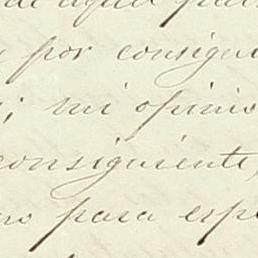 de aquel
por consigu
; mi opinio
consiguiente,
para esp